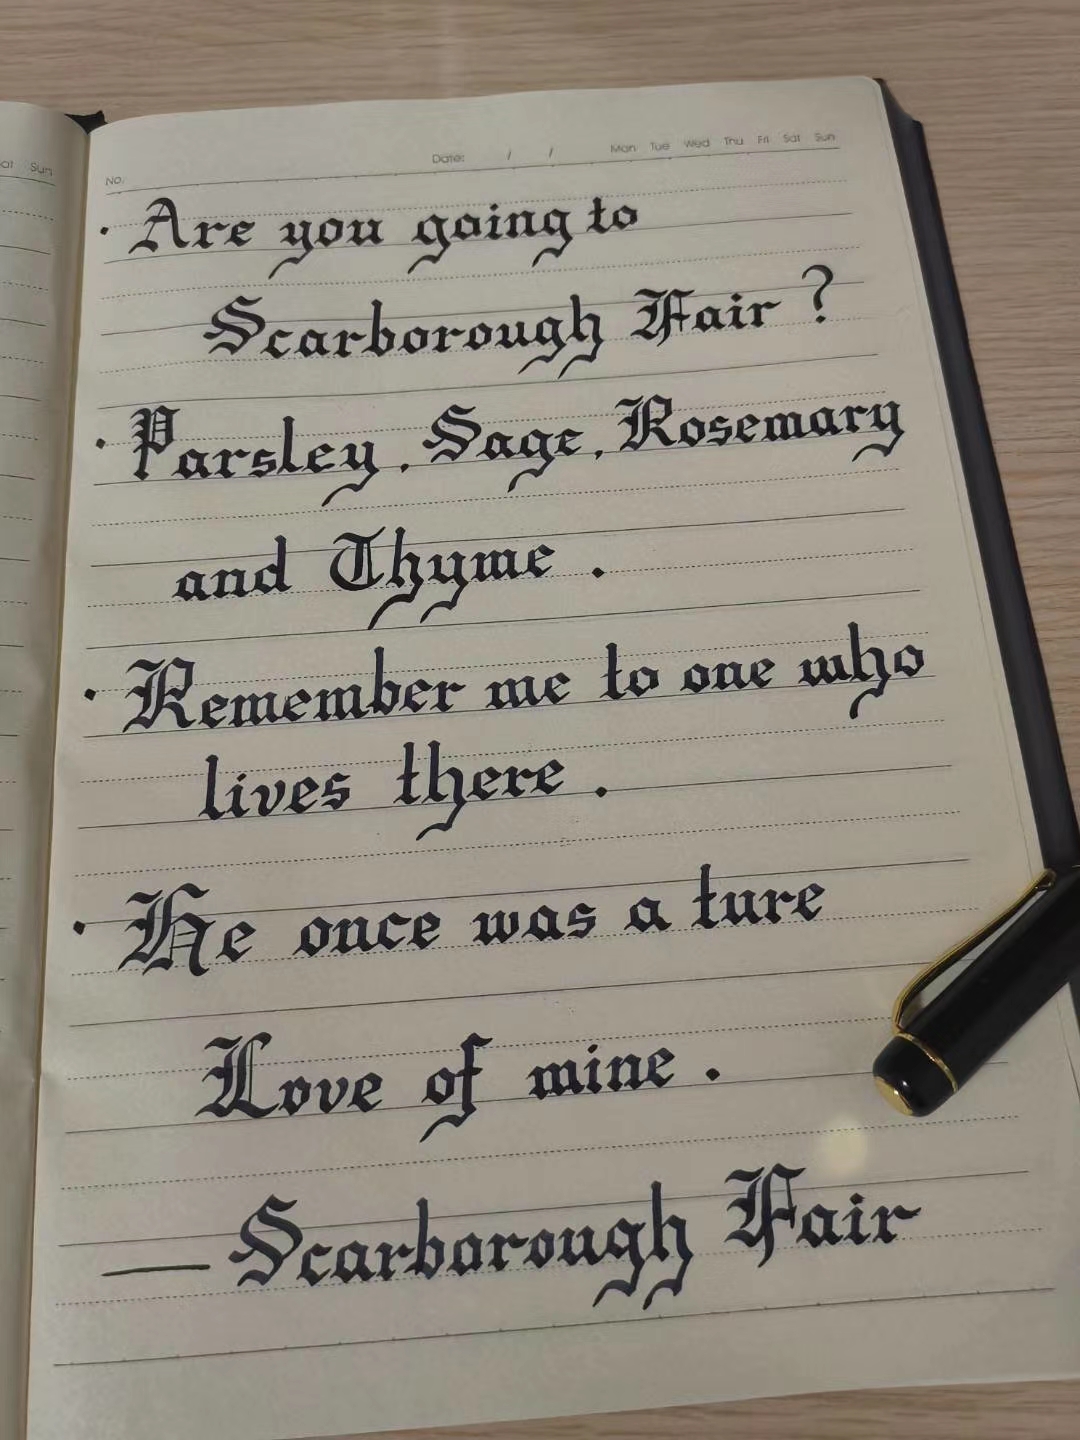 at Sun
No. Date: / / Mon Tue Wed Thu Fri Sat Sun
· Are you going to
Scarborough Fair ?
· Parsley , Sage , Rosemary
and Thyme .
· Remember me to one who
lives there .
· He once was a ture
Love of mine .
— Scarborough Fair